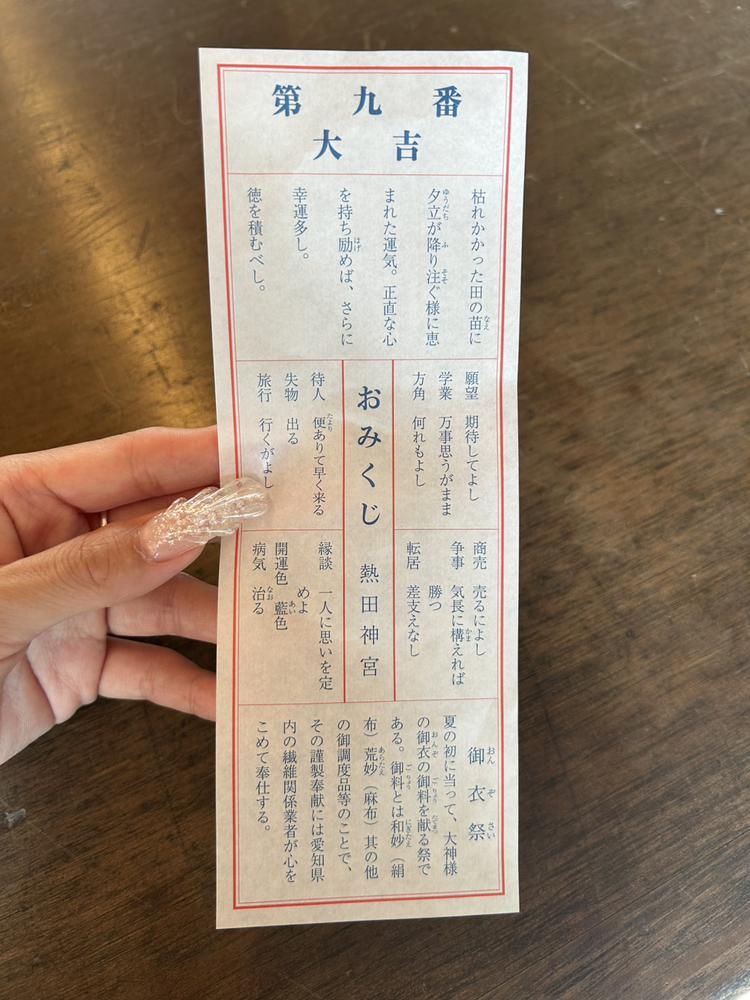 第九番
大吉
枯れかかった田の苗に
夕立が降り注ぐ様に恵
まれた運気。正直な心
を持ち励めば、さらに
幸運多し。
徳を積むべし。
願望 期待してよし
学業 万事思うがまま
方角 何れもよし
商売 売るによし
争事 気長に構えれば
勝つ
転居 差支えなし
おみくじ 熱田神宮
待人 便ありて早く来る
失物 出る
旅行 行くがよし
縁談 一人に思いを定
めよ
開運色 藍色
病気 治る
御衣祭
夏の初に当って、大神様
の御衣の御料を献る祭で
ある。御料とは和妙（絹
布）荒妙（麻布）其の他
の御調度品等のことで、
その謹製奉献には愛知県
内の繊維関係業者が心を
こめて奉仕する。